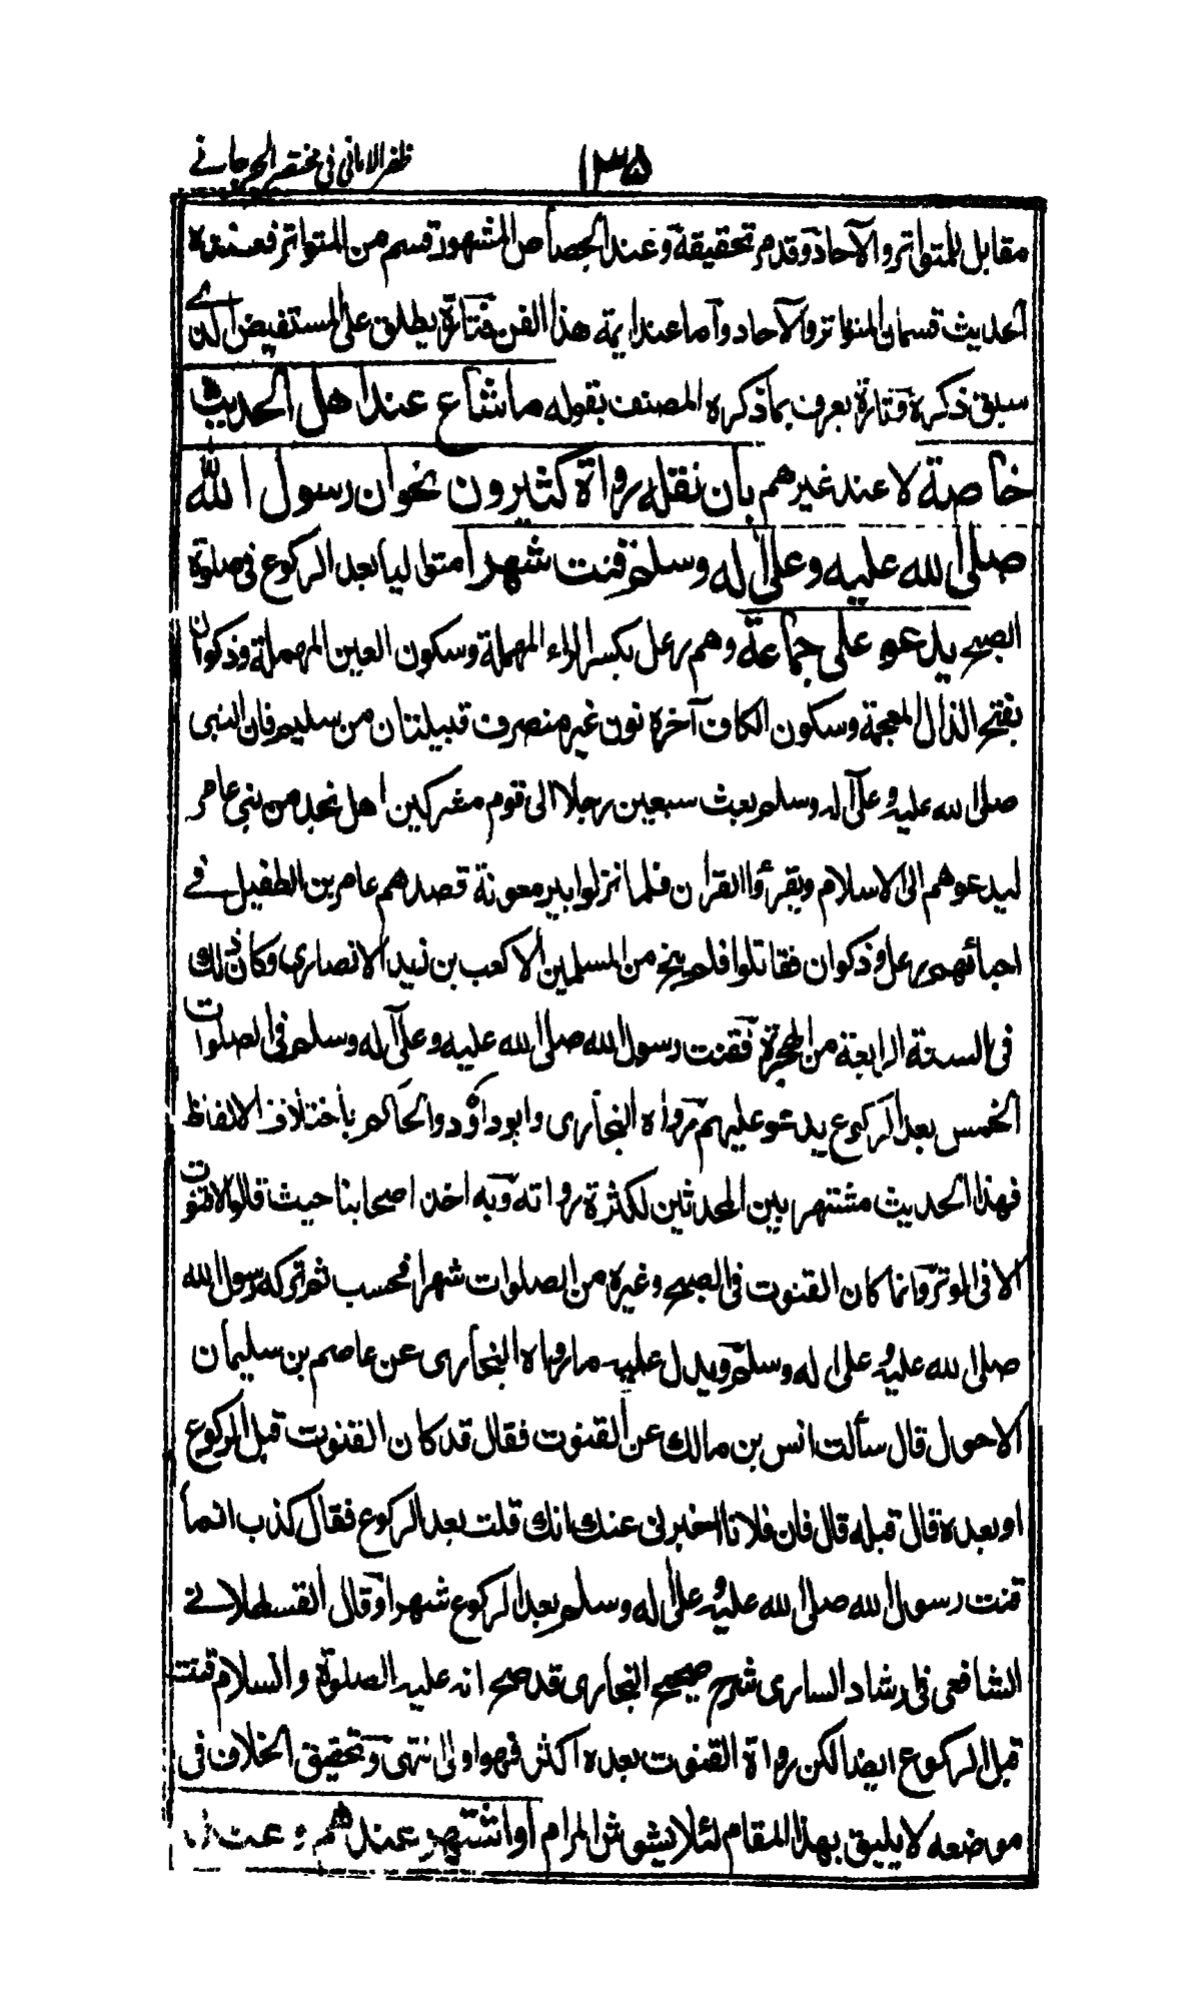 ظفر الامانى فى مختصر الجرجانے
١٣٥
مقابل للمتواتر والآحاد وقد مر تحقيقه وعند الجصاص المشهور قسم من المتواتر فعنده
الحديث قسمان المتواتر والآحاد وآما عند ايمة هذا الفن فتارة يطلق على المستفيض الذے
سبق ذكره وتارة يعرف بما ذكره المصنف بقوله ما شاع عند اهل الحديث
خاصة لا عند غيرهم بان نقله رواة كثيرون نحو ان رسول الله
صلى الله عليه وعلى اله وسلم قنت شهرا متواليا بعد الركوع فى صلوة
الصبح يدعو على جماعة وهم رعل بكسر الراء المهملة وسكون العين المهملة وذكوان
بفتح الذال المعجمة وسكون الكاف آخره نون غير منصرف قبيلتان من سليم فان النبى
صلى الله عليه وعلى آله وسلم بعث سبعين رجلا الى قوم مشركين اهل نجد من بنى عامر
ليدعوهم الى الاسلام ويقرؤا القران فلما نزلوا بير معونة قصدهم عامر بن الطفيل فے
احيائهم رعل وذكوان فقاتلوا فلم ينج من المسلمين الا كعب بن زيد الانصارى وكان ذلك
فى السنة الرابعة من الهجرة فقنت رسول الله صلى الله عليه وعلى آله وسلم فى الصلوات
الخمس بعد الركوع يدعو عليهم رواه البخارى وابو داؤد والحاكم باختلاف الالفاظ
فهذا الحديث مشتهر بين المحدثين لكثرة رواته وبه اخذ اصحابنا حيث قالوا لا قنوت
الا فى الوتر وانما كان القنوت فى الصبح وغيره من الصلوات شهرا فحسب ثم تركه رسول الله
صلى الله عليه وعلى اله وسلم ويدل عليه ما رواه البخارى عن عاصم بن سليمان
الاحول قال سألت انس بن مالك عن القنوت فقال قد كان القنوت قبل الركوع
او بعده قال قبله قال فان فلانا اخبرنى عنك انك قلت بعد الركوع فقال كذب انما
قنت رسول الله صلى الله عليه وعلى اله وسلم بعد الركوع شهرا وقال القسطلانے
الشافعى فى ارشاد السارى شرح صحيح البخارى قد صح انه عليه الصلوة والسلام قنت
قبل الركوع ايضا لكن رواة القنوت بعده اكثر فهو اولى انتهى وتحقيق الخلاف فى
موضعه لا يليق بهذا المقام لئلا يشوش المرام او اشتهر عندهم وعند